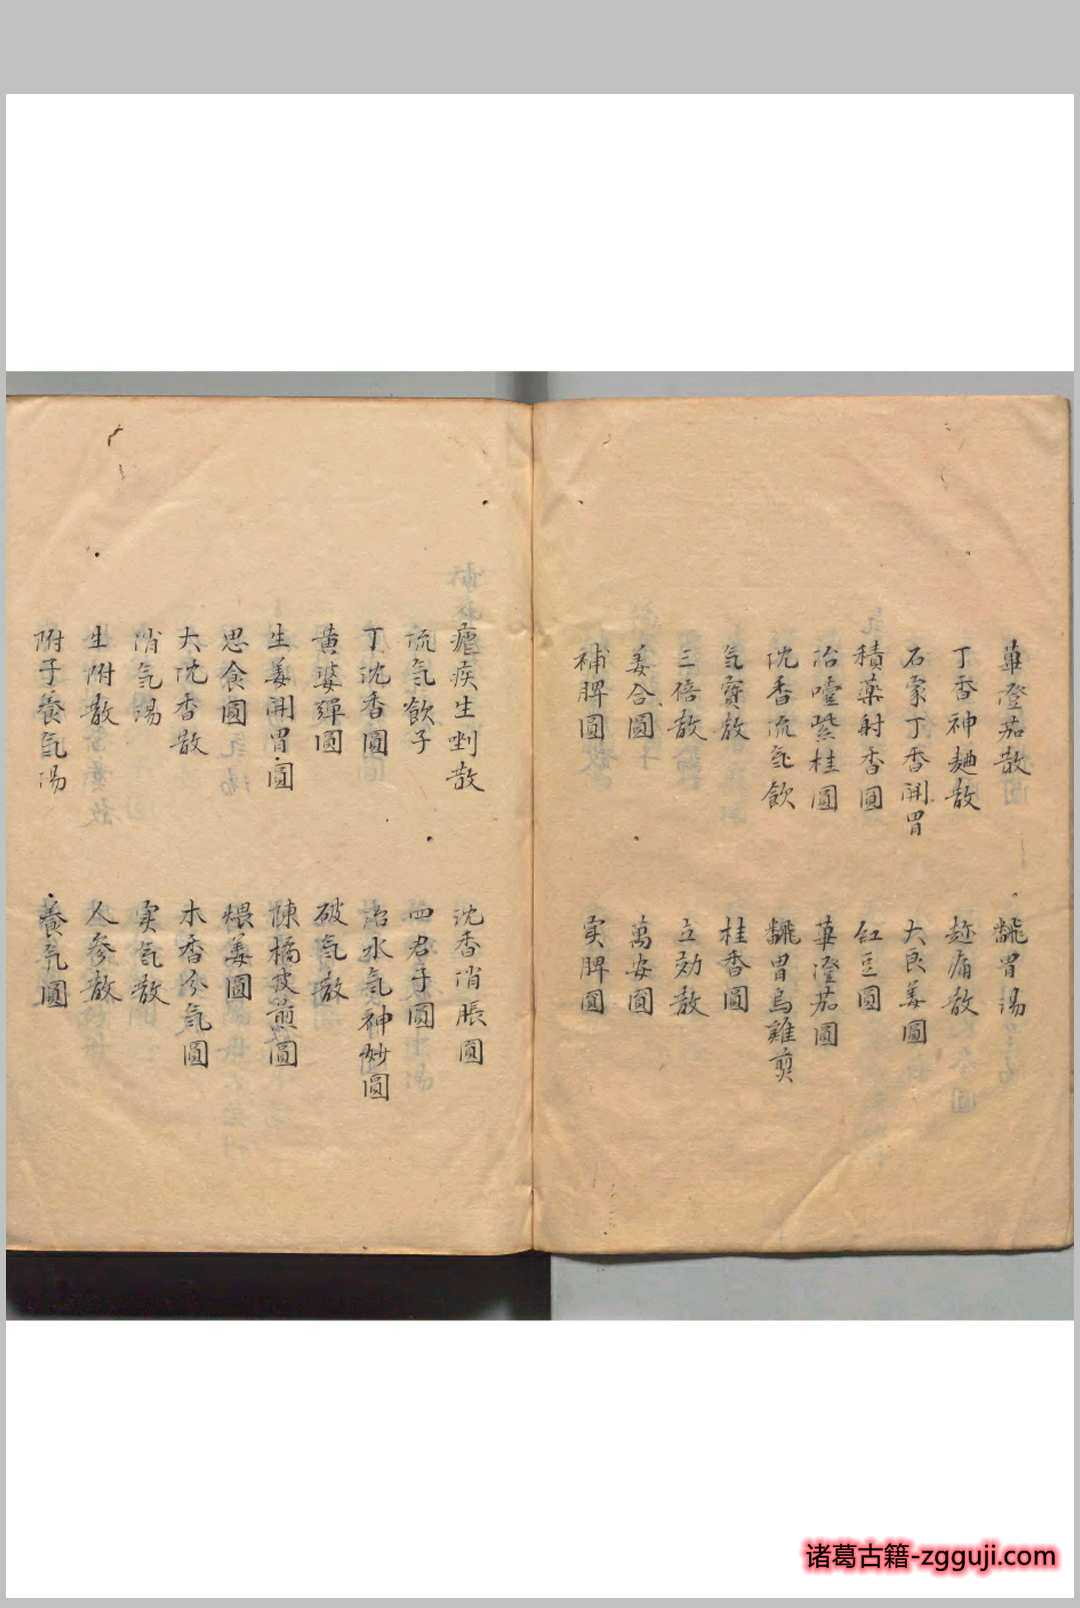 蓽澄茄散
飜胃湯
丁香神麯散
趂痛散
石家丁香開胃
大良姜圓
積藥射香圓
红豆圓
治噎紫桂圓
蓽澄茄圓
沈香流氣飲
飜胃烏雞煎
氣寳散
桂香圓
三倍散
立効散
姜合圓
萬安圓
補脾圓
实脾圓
瘧疾生剉散
沈香消脹圓
流氣飲子
四君子圓
丁沈香圓
治水气神妙圓
黄婆彈圓
破气散
生姜開胃圓
陳橘皮煎圓
思食圓
煨姜圓
大沈香散
木香分气圓
消气湯
实气散
生附散
人参散
附子養气湯
養气圓
诸葛古籍-zgguji.com